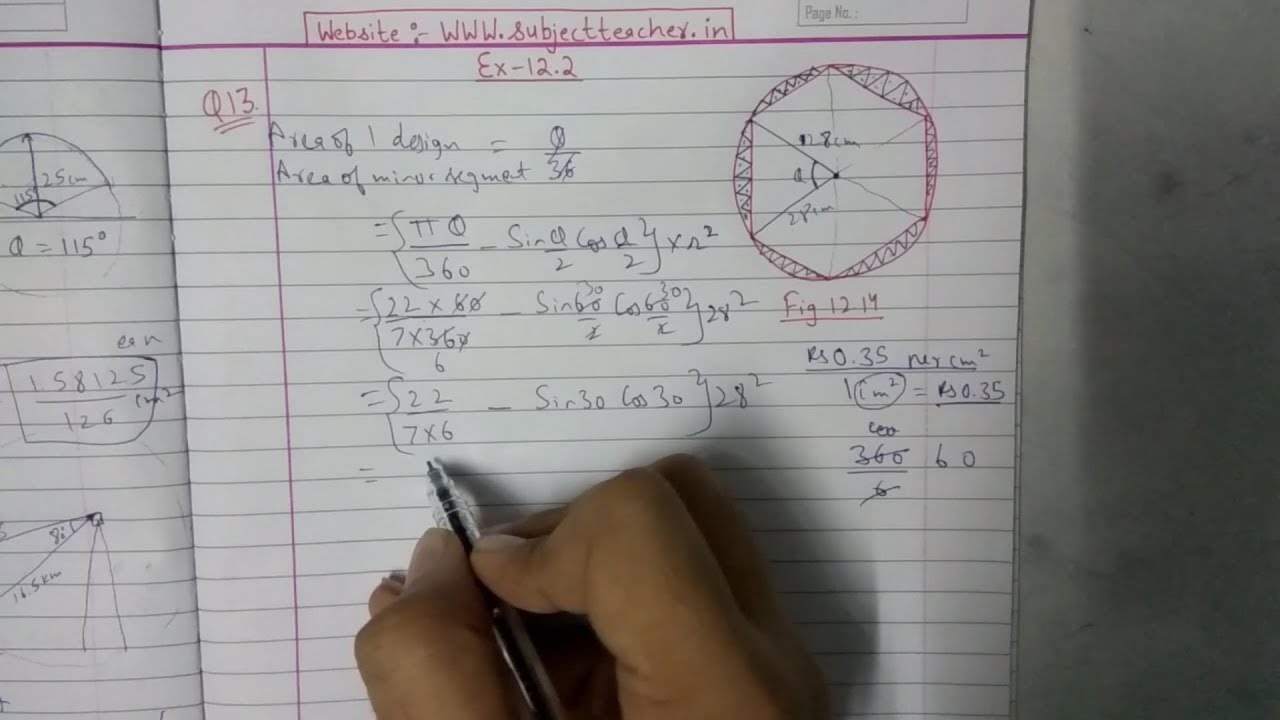 Page No.:
Website :- WWW.subjectteacher.in
Ex-12.2
Q13.
Area of 1 design = θ
Area of minor segment 36
= {πθ/360 - Sin θ/2 Cos θ/2} × r²
= {22 × 60/7×360 - Sin 60/2 Cos 60/2} 28²
30 30
6
= {22/7×6 - Sin30 Cos30} 28²
=
28cm
θ
28cm
Fig 12.14
Rs 0.35 per cm²
1 cm² = Rs 0.35
360/6 60
25cm
115
θ = 115°
158125/126 cm²
80
16.5km